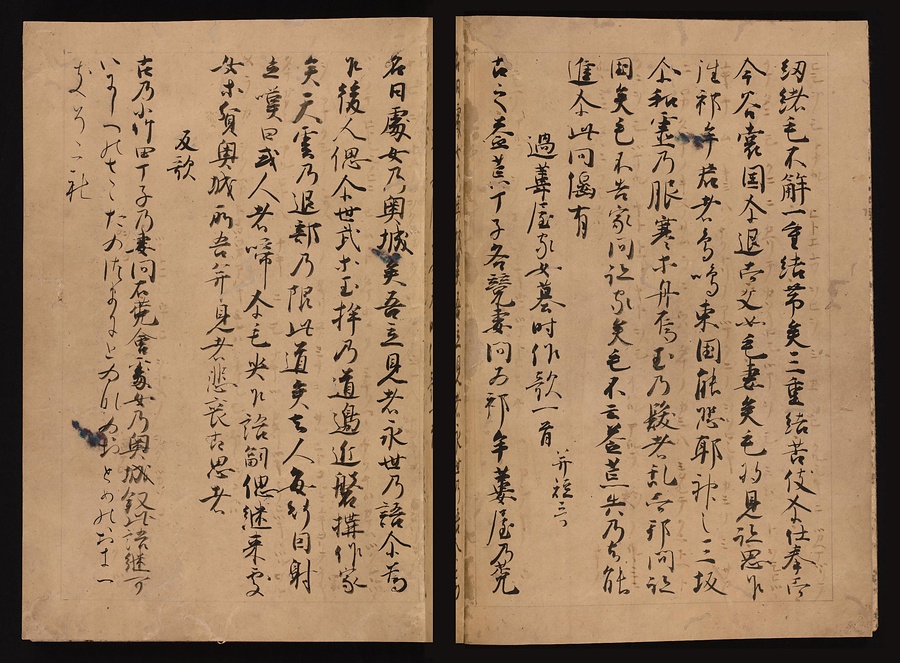 紐緒毛不解一重結帶矣三重結苦伎尓仕奉而
今谷裳國尓退而父妣毛妻矣毛将見跡思乍
徃祁牟君者鳥鳴東國能恐耶神之三坂
尓和靈乃服寒等丹烏玉乃髪者乱而邪問跡
國矣毛不告家問跡家矣毛不云益荒夫乃去能
進尓此間偃有
過葦屋家女墓時作歌一首 并短哥
古之益荒丁子各競妻問為祁牟葦屋乃菟
名日處女乃奥城矣吾立見者永世乃語尓為
乍後人偲尓世武等玉桙乃道邊近磐構作冢
矣天雲乃退部乃限此道矣去人毎行因射
立嘆日或人者啼尓毛哭乍語嗣偲継来處
女等賀奥城所吾并見者悲喪古思者
反歌
古乃小竹田丁子乃妻問石菟會處女乃奥城叙
いにしへのさゝたの